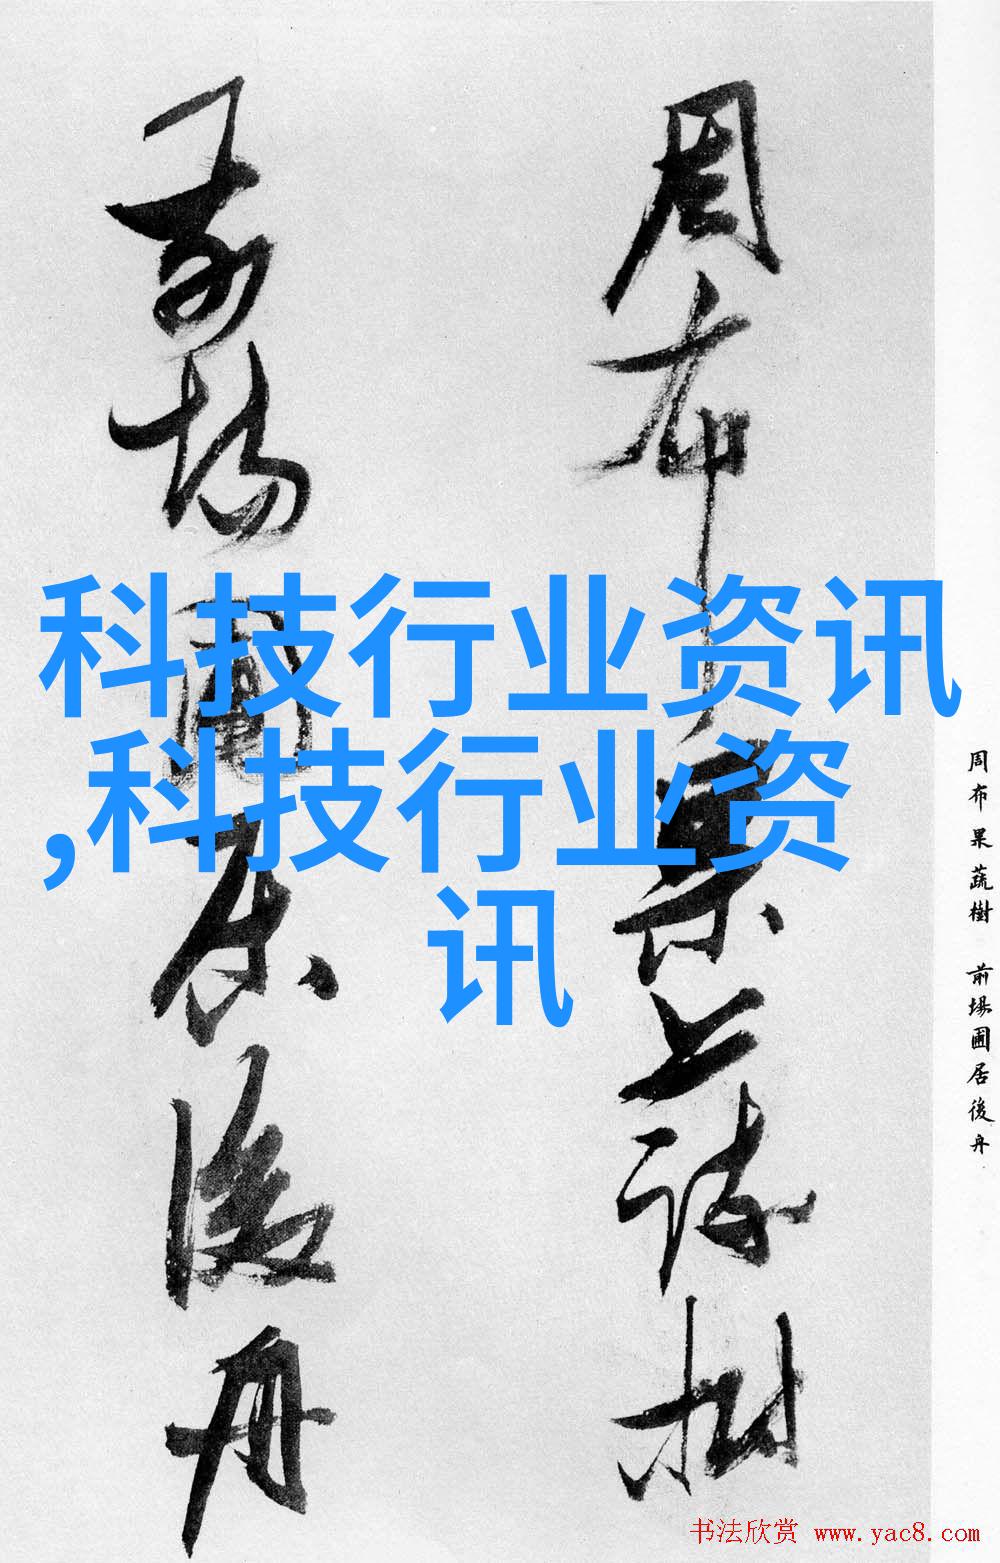 周布果蔬樹
前場圃居後舟
科技行业资讯
,科技行业资
讯
周布果蔬樹 前場圃居後舟
书法欣赏 www.yac8.com